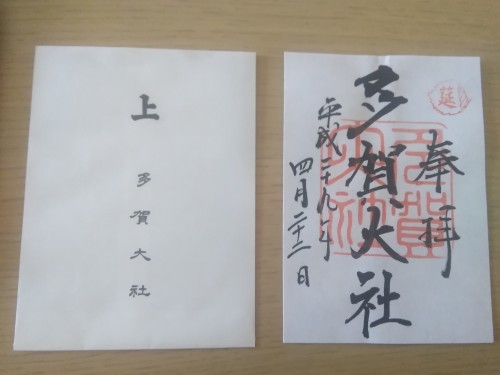 上
多賀大社
延
奉拝
多賀大社
多賀大社
平成二十九年
四月二十二日